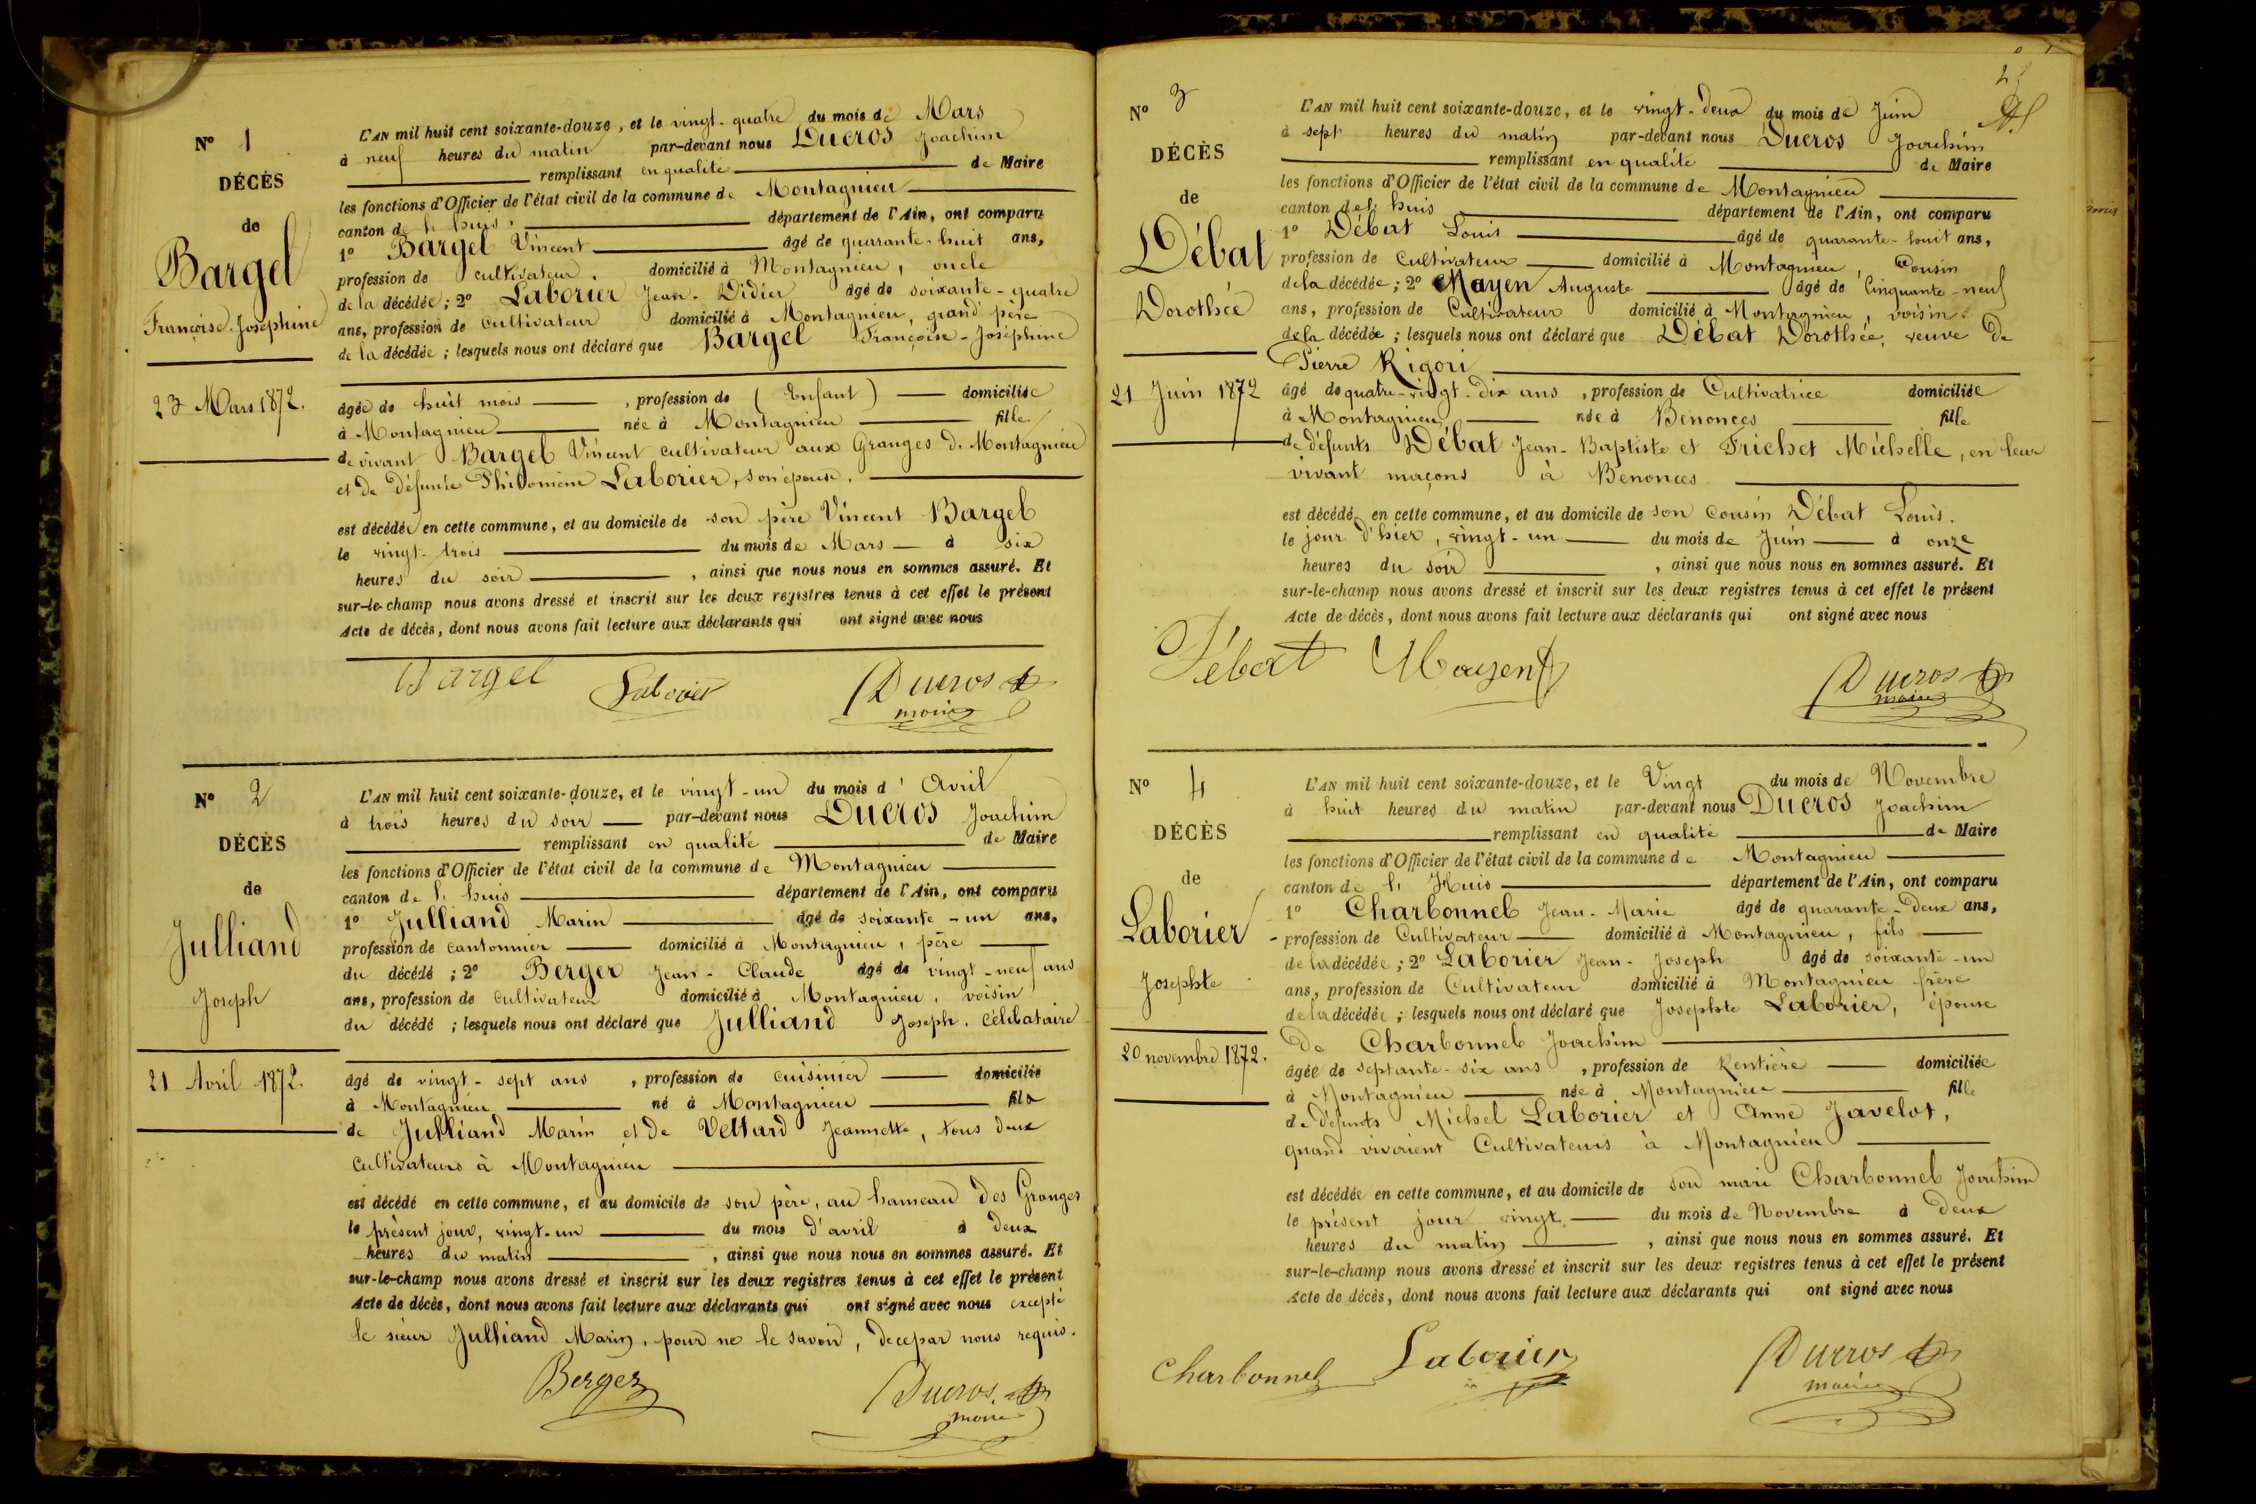 Nº 1
DÉCÈS
de
Bargel
Françoise-Joséphine
23 Mars 1872.
L'AN mil huit cent soixante-douze, et le vingt-quatre du mois de Mars
à neuf heures du matin par-devant nous Ducros Joachim
remplissant en qualité de Maire
les fonctions d'Officier de l'état civil de la commune de Montagnieu
canton de lhuis département de l'Ain, ont comparu
1º Bargel Vincent âgé de quarante-huit ans,
profession de cultivateur, domicilié à Montagnieu, oncle
de la décédée; 2º Laborier Jean-Didier âgé de soixante-quatre
ans, profession de cultivateur domicilié à Montagnieu, grand père
de la décédée; lesquels nous ont déclaré que Bargel Françoise-Joséphine
âgée de huit mois, profession de (Enfant) domiciliée
à Montagnieu née à Montagnieu fille
de vivant Bargel Vincent cultivateur aux Granges de Montagnieu
et de défunte Philomène Laborier, son épouse.
est décédée en cette commune, et au domicile de son père Vincent Bargel
le vingt-trois du mois de Mars à six
heures du soir, ainsi que nous nous en sommes assuré. Et
sur-le-champ nous avons dressé et inscrit sur les deux registres tenus à cet effet le présent
Acte de décès, dont nous avons fait lecture aux déclarants qui ont signé avec nous
Bargel Laborier Ducros
maire
Nº 2
DÉCÈS
de
Julliand
Joseph
21 Avril 1872.
L'AN mil huit cent soixante-douze, et le vingt-un du mois d'Avril
à trois heures du soir par-devant nous Ducros Joachim
remplissant en qualité de Maire
les fonctions d'Officier de l'état civil de la commune de Montagnieu
canton de lhuis département de l'Ain, ont comparu
1º Julliand Marin âgé de soixante-un ans,
profession de cantonnier domicilié à Montagnieu, père
du décédé; 2º Berger Jean-Claude âgé de vingt-neuf ans
ans, profession de cultivateur domicilié à Montagnieu, voisin
du décédé; lesquels nous ont déclaré que Julliand Joseph, Célibataire
âgé de vingt-sept ans, profession de cuisinier domicilié
à Montagnieu né à Montagnieu fils
de Julliand Marin et de Vettard Jeannette, tous deux
Cultivateurs à Montagnieu
est décédé en cette commune, et au domicile de son père, au hameau des Granges
le présent jour, vingt-un du mois d'avril à deux
heures du matin, ainsi que nous nous en sommes assuré. Et
sur-le-champ nous avons dressé et inscrit sur les deux registres tenus à cet effet le présent
Acte de décès, dont nous avons fait lecture aux déclarants qui ont signé avec nous excepté
le sieur Julliand Marin, pour ne le savoir, de ce par nous requis.
Berger Ducros
maire
Nº 3
DÉCÈS
de
Débat
Dorothée
21 Juin 1872
L'AN mil huit cent soixante-douze, et le vingt-deux du mois de Juin
à sept heures du matin par-devant nous Ducros Joachim
remplissant en qualité de Maire
les fonctions d'Officier de l'état civil de la commune de Montagnieu
canton de lhuis département de l'Ain, ont comparu
1º Débat Louis âgé de quarante-huit ans,
profession de Cultivateur domicilié à Montagnieu, Cousin
de la décédée; 2º Mayen Auguste âgé de Cinquante-neuf
ans, profession de Cultivateur domicilié à Montagnieu, voisin
de la décédée; lesquels nous ont déclaré que Débat Dorothée, veuve de
Pierre Rigori
âgé de quatre-vingt-dix ans, profession de Cultivatrice domiciliée
à Montagnieu née à Benonces fille
de défunts Débat Jean-Baptiste et Trichet Michelle, en leur
vivant maçons à Benonces
est décédé en cette commune, et au domicile de son Cousin Débat Louis.
le jour d'hier, vingt-un du mois de Juin à onze
heures du soir, ainsi que nous nous en sommes assuré. Et
sur-le-champ nous avons dressé et inscrit sur les deux registres tenus à cet effet le présent
Acte de décès, dont nous avons fait lecture aux déclarants qui ont signé avec nous
Débat Mayen Ducros
maire
Nº 4
DÉCÈS
de
Laborier
Josephte
20 novembre 1872.
L'AN mil huit cent soixante-douze, et le Vingt du mois de Novembre
à huit heures du matin par-devant nous Ducros Joachim
remplissant en qualité de Maire
les fonctions d'Officier de l'état civil de la commune de Montagnieu
canton de lhuis département de l'Ain, ont comparu
1º Charbonnel Jean-Marie âgé de quarante-deux ans,
profession de Cultivateur domicilié à Montagnieu, fils
de la décédée; 2º Laborier Jean-Joseph âgé de soixante-un
ans, profession de Cultivateur domicilié à Montagnieu frère
de la décédée; lesquels nous ont déclaré que Josephte Laborier, épouse
De Charbonnel Joachim
âgée de septante-six ans, profession de Rentière domiciliée
à Montagnieu née à Montagnieu fille
de défunts Michel Laborier et Anne Javelot,
quand vivoient Cultivateurs à Montagnieu
est décédée en cette commune, et au domicile de son mari Charbonnel Joachim
le présent jour vingt du mois de Novembre à Deux
heures du matin, ainsi que nous nous en sommes assuré. Et
sur-le-champ nous avons dressé et inscrit sur les deux registres tenus à cet effet le présent
Acte de décès, dont nous avons fait lecture aux déclarants qui ont signé avec nous
Charbonnel Laborier Ducros
maire